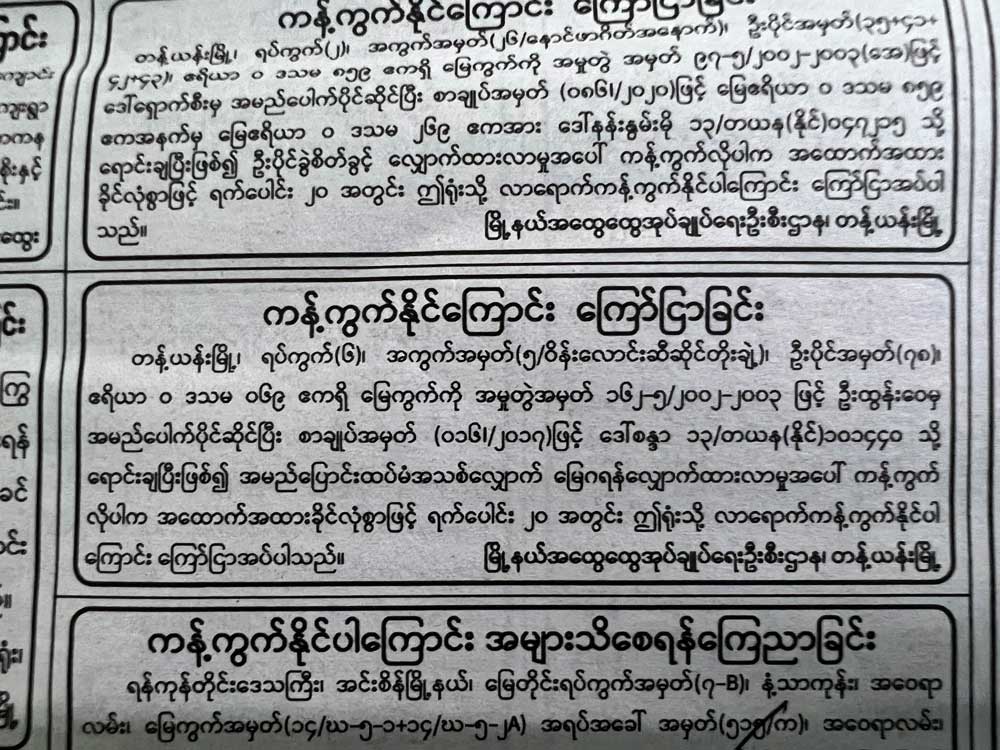 ကန့်ကွက်နိုင်ကြောင်း ကြော်ငြာခြင်း
တန့်ယန်းမြို့၊ ရပ်ကွက်(၂)၊ အကွက်အမှတ်(၂၆/နောင်ဖာဂိတ်အနောက်)၊ ဦးပိုင်အမှတ်(၃၅+၄၁+
၄၂+၄၃)၊ ဧရိယာ ၀ ဒသမ ၈၅၉ ဧကရှိ မြေကွက်ကို အမှုတွဲ အမှတ် ၉၇-၅/၂၀၀၂-၂၀၀၃(အေ)ဖြင့်
ဒေါ်ရှောက်စီးမှ အမည်ပေါက်ပိုင်ဆိုင်ပြီး စာချုပ်အမှတ် (၀၈၆၊/၂၀၂၀)ဖြင့် မြေဧရိယာ ၀ ဒသမ ၈၅၉
ဧကအနက်မှ မြေဧရိယာ ၀ ဒသမ ၂၆၉ ဧကအား ဒေါ်နန်းနွမ်းမို ၁၃/တယန(နိုင်)၀၄၇၂၁၅ သို့
ရောင်းချပြီးဖြစ်၍ ဦးပိုင်ခွဲစိတ်ခွင့် လျှောက်ထားလာမှုအပေါ် ကန့်ကွက်လိုပါက အထောက်အထား
ခိုင်လုံစွာဖြင့် ရက်ပေါင်း ၂၀ အတွင်း ဤရုံးသို့ လာရောက်ကန့်ကွက်နိုင်ပါကြောင်း ကြော်ငြာအပ်ပါ
သည်။ မြို့နယ်အထွေထွေအုပ်ချုပ်ရေးဦးစီးဌာန၊ တန့်ယန်းမြို့
ကန့်ကွက်နိုင်ကြောင်း ကြော်ငြာခြင်း
တန့်ယန်းမြို့၊ ရပ်ကွက်(၆)၊ အကွက်အမှတ်(၅/ဝိန်းလောင်းဆီဆိုင်တိုးချဲ့)၊ ဦးပိုင်အမှတ်(၇၈)၊
ဧရိယာ ၀ ဒသမ ၀၆၉ ဧကရှိ မြေကွက်ကို အမှုတွဲအမှတ် ၁၆၂-၅/၂၀၀၂-၂၀၀၃ ဖြင့် ဦးထွန်းဝေမှ
အမည်ပေါက်ပိုင်ဆိုင်ပြီး စာချုပ်အမှတ် (၀၁၆၊/၂၀၁၇)ဖြင့် ဒေါ်စန္ဒာ ၁၃/တယန(နိုင်)၁၀၁၄၄၀ သို့
ရောင်းချပြီးဖြစ်၍ အမည်ပြောင်းထပ်မံအသစ်လျှောက် မြေဂရန်လျှောက်ထားလာမှုအပေါ် ကန့်ကွက်
လိုပါက အထောက်အထားခိုင်လုံစွာဖြင့် ရက်ပေါင်း ၂၀ အတွင်း ဤရုံးသို့ လာရောက်ကန့်ကွက်နိုင်ပါ
ကြောင်း ကြော်ငြာအပ်ပါသည်။ မြို့နယ်အထွေထွေအုပ်ချုပ်ရေးဦးစီးဌာန၊ တန့်ယန်းမြို့
ကန့်ကွက်နိုင်ပါကြောင်း အများသိစေရန်ကြေညာခြင်း
ရန်ကုန်တိုင်းဒေသကြီး၊ အင်းစိန်မြို့နယ်၊ မြေတိုင်းရပ်ကွက်အမှတ်(၇-B)၊ နံ့သာကုန်း၊ အဝေရာ
လမ်း၊ မြေကွက်အမှတ်(၁၄/ဃ-၅-၁+၁၄/ဃ-၅-၂A) အရပ်အခေါ် အမှတ် အဝေရာလမ်း၊